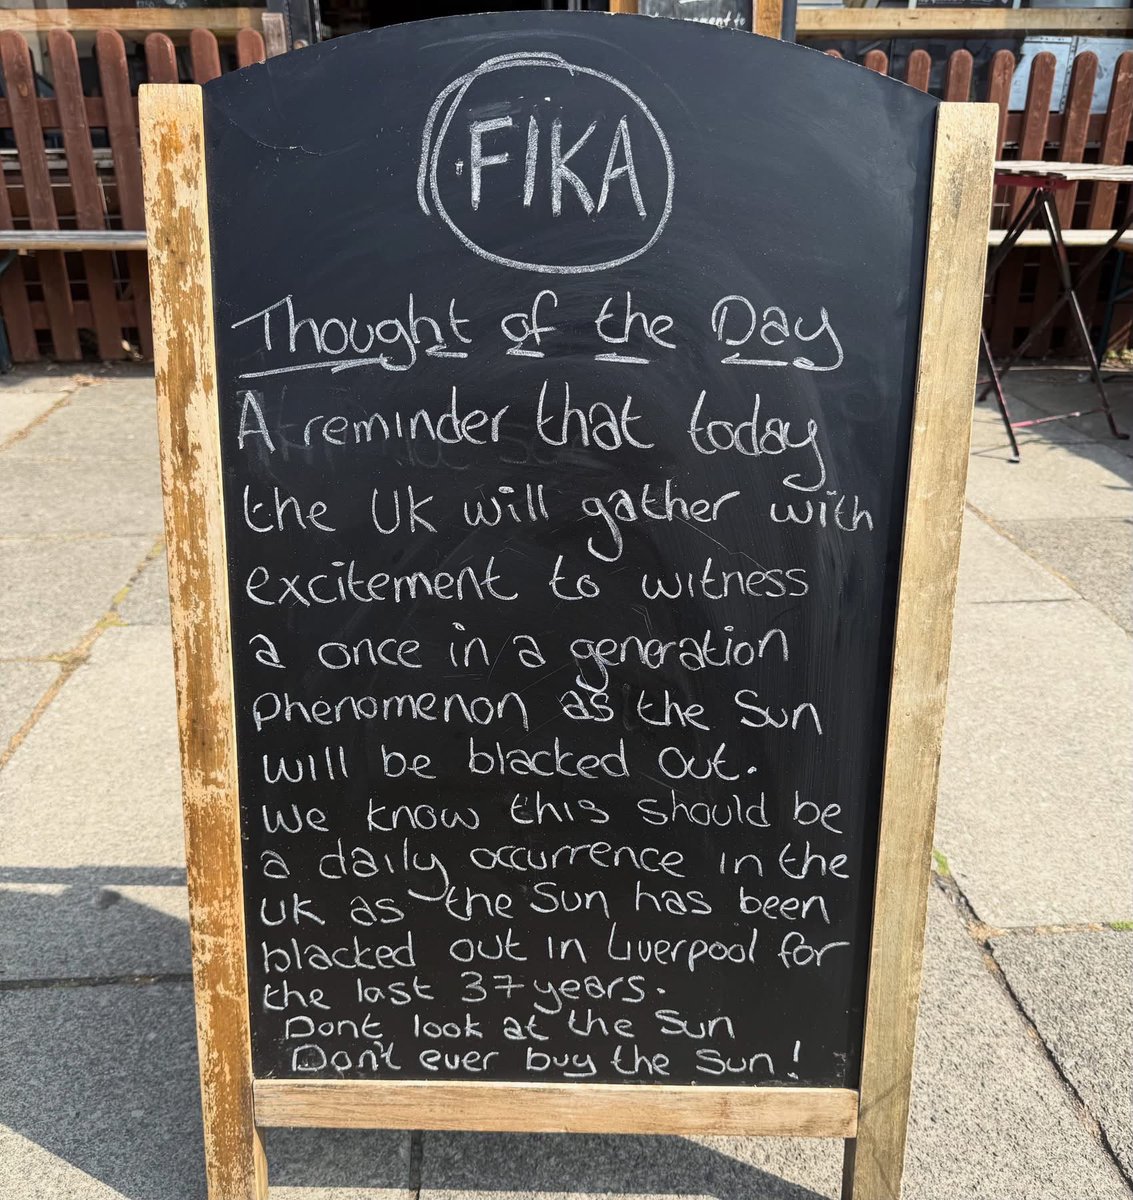 FIKA
Thought of the Day
A reminder that today
the UK will gather with
excitement to witness
a once in a generation
phenomenon as the Sun
will be blacked out.
We know this should be
a daily occurrence in the
UK as the Sun has been
blacked out in Liverpool for
the last 37 years.
Dont look at the Sun
Don't ever buy the Sun!